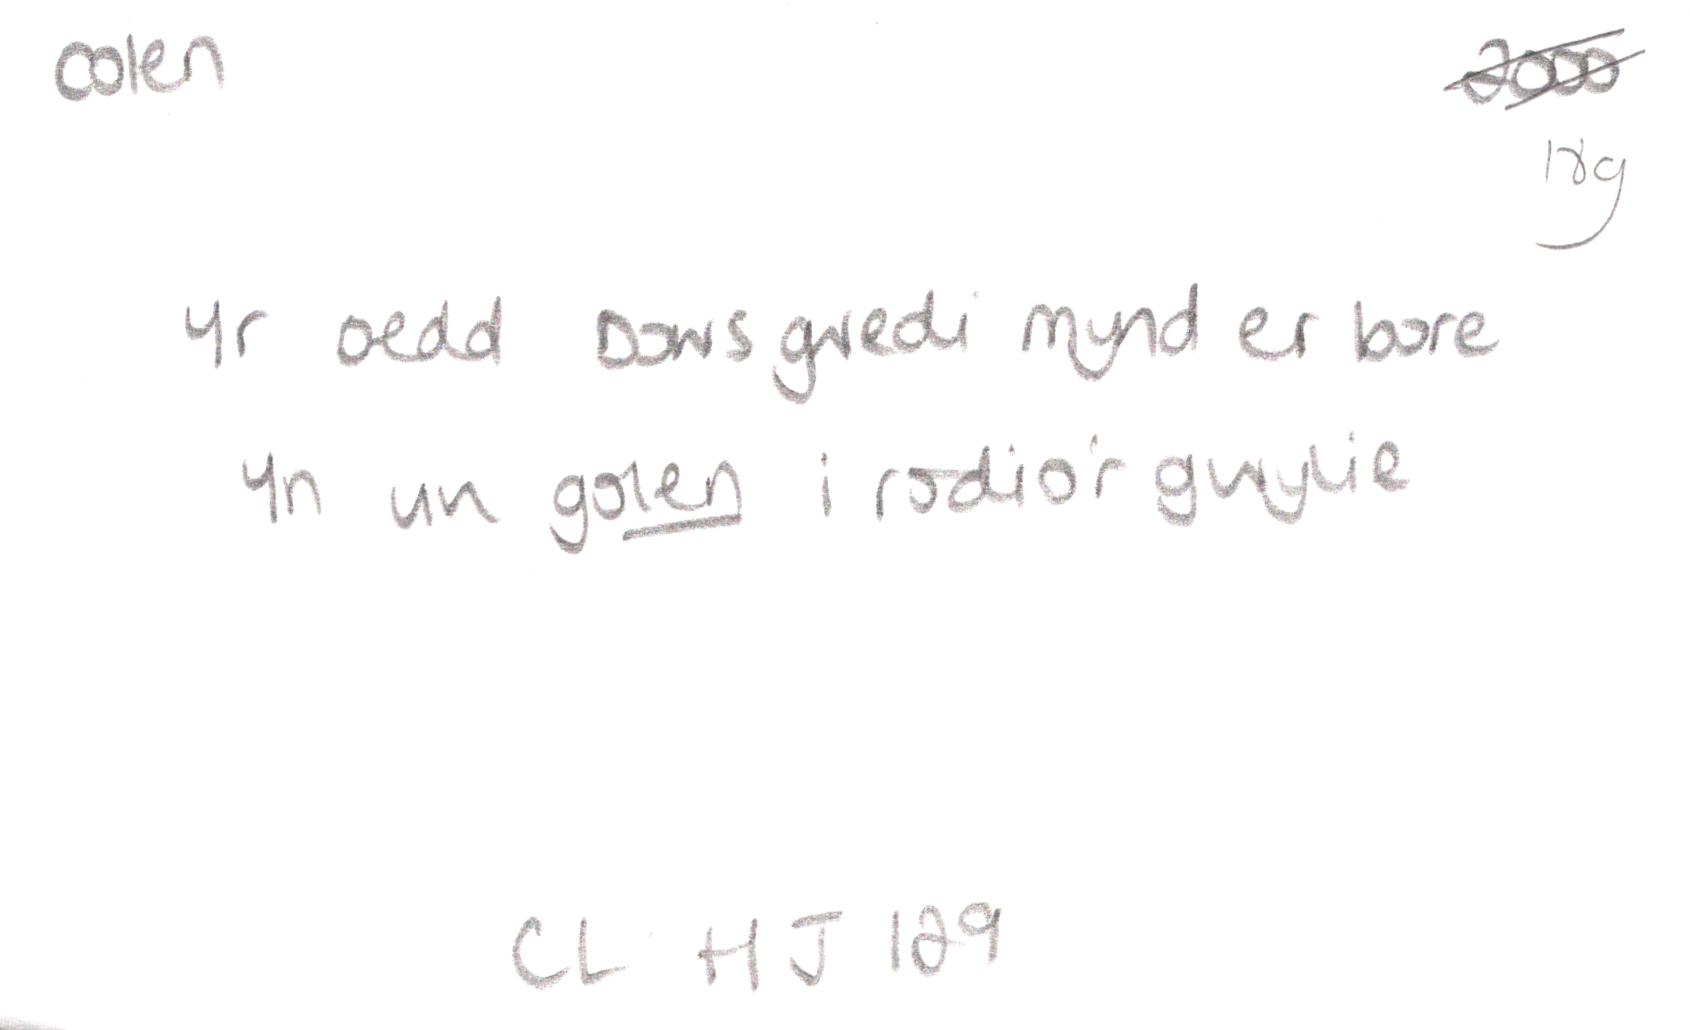 colen
2000
18g
Yr oedd Dows gwedi mynd er bore
Yn un golen i rodio'r gwylie
CL HJ 129